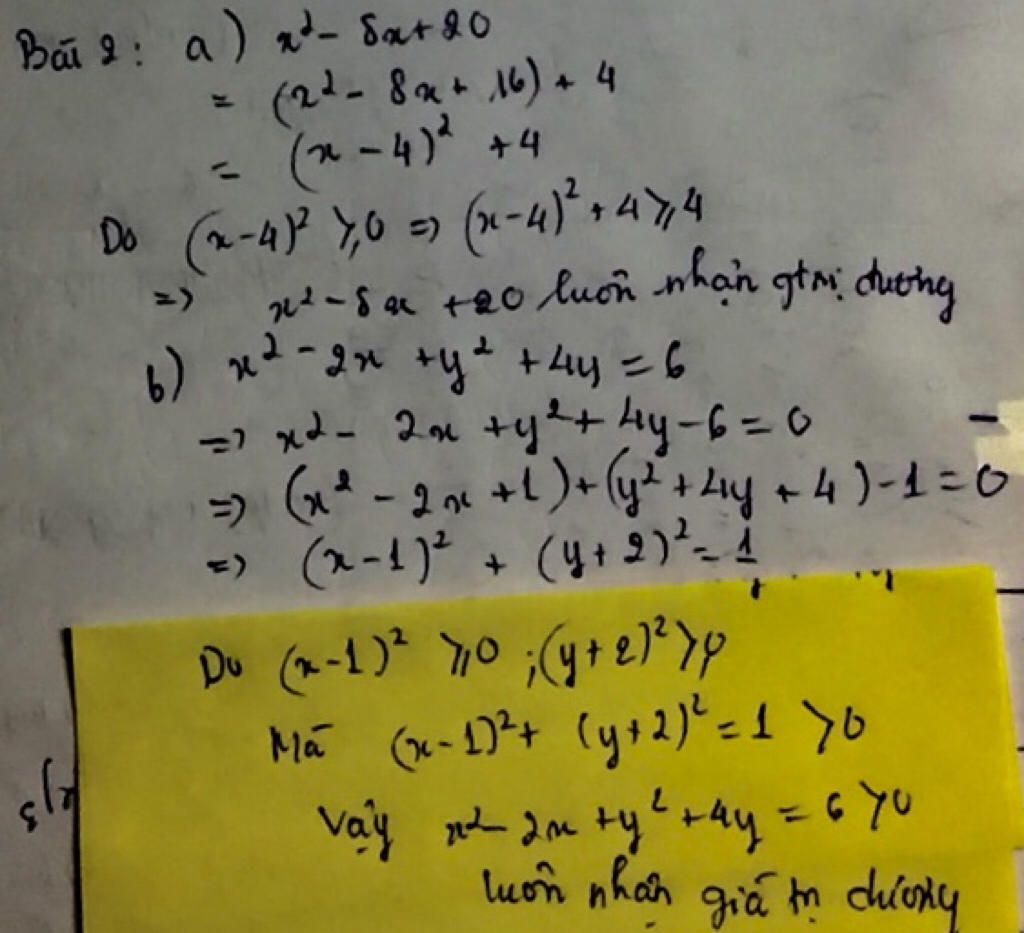 Bài 2: a) x² - 8x + 20
= (x² - 8x + 16) + 4
= (x - 4)² + 4
Do (x-4)² ⩾ 0 => (x-4)² + 4 ⩾ 4
=> x² - 8x + 20 luôn nhận gtrị dương
b) x² - 2x + y² + 4y = 6
=> x² - 2x + y² + 4y - 6 = 0
=> (x² - 2x + 1) + (y² + 4y + 4) - 1 = 0
=> (x-1)² + (y+2)² = 1
Do (x-1)² ⩾ 0 ; (y+2)² ⩾ 0
Mà (x-1)² + (y+2)² = 1 > 0
Vậy x² - 2x + y² + 4y = 6 > 0
luôn nhận giá trị dương